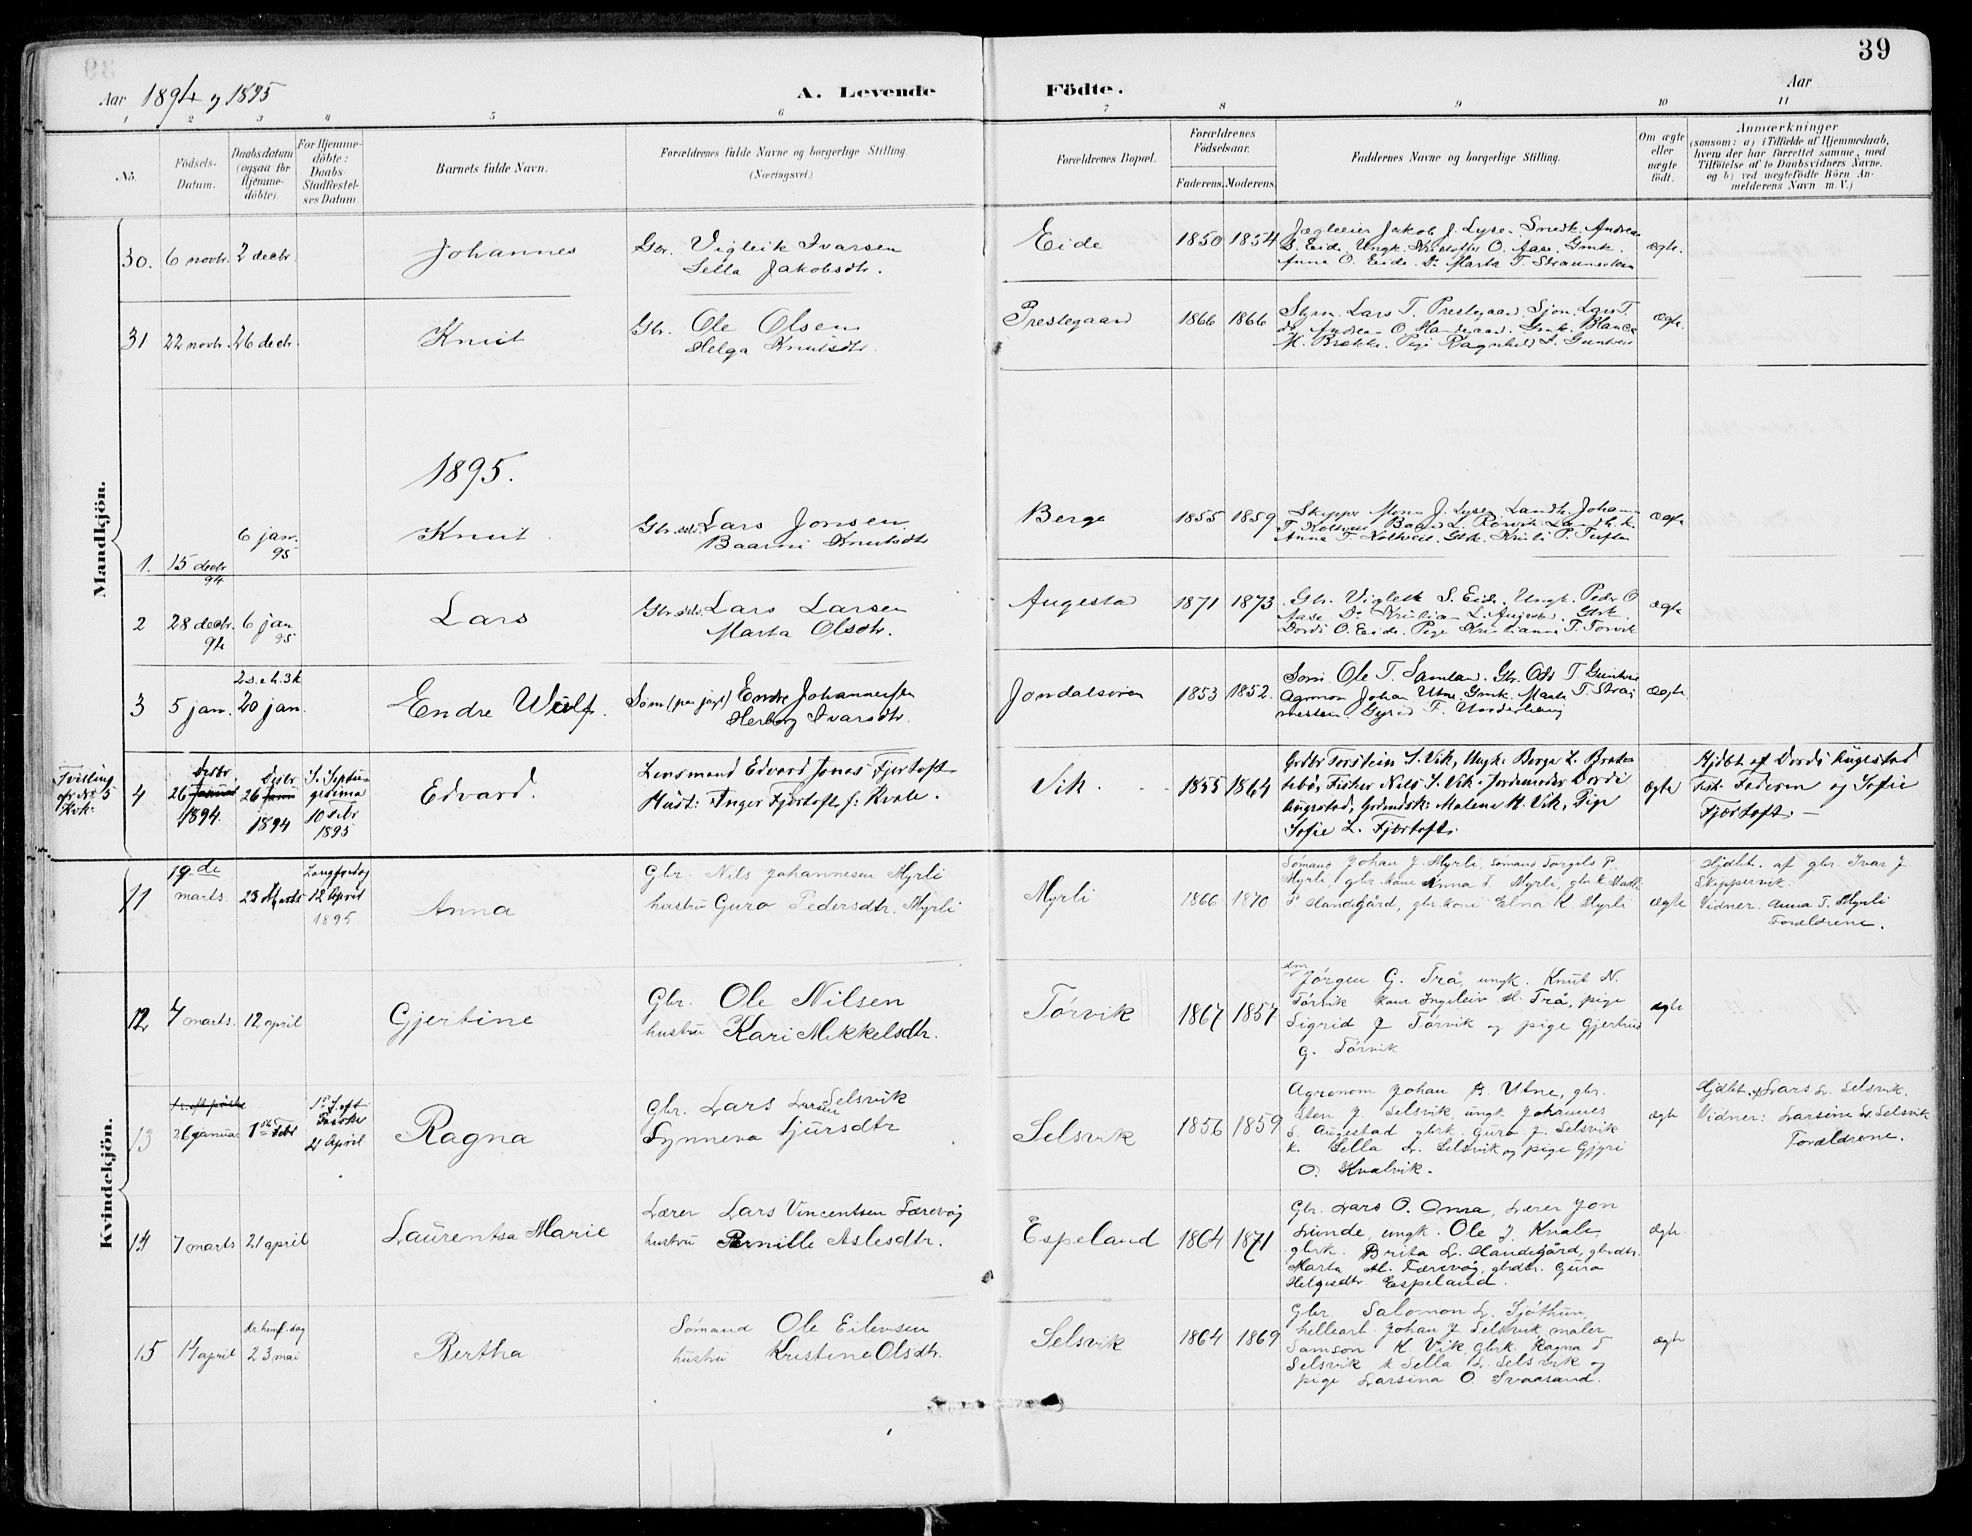 39
Aar 1894 og 1895
A. Levende Födte.
Aar
1 2 3 4 5 6 7 8 9 10 11
No.
Födsels-Datum.
Daabsdatum (ogsaa for Hjemme-döbte).
For Hjemme-döbte: Daabs-Stadfæstel-ses Datum.
Barnets fulde Navn.
Forældrenes fulde Navne og borgerlige Stilling.
(Næringsvei.)
Forældrenes Bopæl.
Forældrenes Födselsaar.
Faderens. Moderens.
Faddernes Navne og borgerlige Stilling.
Om ægte eller uægte födt.
Anmærkninger
(saasom: a) i Tilfælde af Hjemmedaab,
hvem der har forrettet samme, med
Tilföielse af to Daabsvidners Navne,
og b) ved uægtefödte Börn An-
melderens Navn m. V.)
Mandkjön.
30. 6 novbr. 2 decbr. Johannes Gbr. Vigleik Ivarsen
Sella Jakobsdtr.
Eide 1850 1854 Jægteeier Jakob J. Lyse. Smedk. Andreas
S. Eide. Ungk. Kristoffer O. Aase. Gmk.
Anna O. Eide. Do Marta T. Straumestein
ægte.
31 22 novbr. 26 decbr. Knut Gbr. Ole Olsen
Helga Knutsdtr.
Prestegaard 1866 1866 Styrm. Lars T. Prestegaard. Sjøm. Lars T.
do, Andreas O. Handegaard. Gmk. Blanca
M. Brække. Pige Ragnhild
ægte.
1895.
1. 15 decbr 94 6 jan. 95 Knut Gbr. selv. Lars Jonsen
Baarni Knutsdtr
Berge 1855 1859 Skipper Mons J. Lyse. Landh. Johan
T. Kolltveit Baard L. Rørvik. Landh. k.
Anna T. Koltveit. Gbk. Kristi P. Tuften
ægte
2 28 decbr. 94 6 jan 95 Lars Gbr. selv. Lars Larsen
Marta Olsdtr.
Augestad 1871 1873 Gbr. Vigleik S. Eide. Ungk. Peder O
Aase. Do Kristian L. Augestad. Gbk.
Dordi O. Eide. Pige Kristianna T. Tørvik
ægte
3 5 jan. 2 s. e. h. 3 k 20 jan. Endre Wulf. Søm (paa jagt) Endre Johannessen
Herborg Ivarsdtr.
Jondalsøren 1853 1852. Søm. Ole T. Samland. Gbr. Odd T.
Agronom Johan Utne. Gmk. Marta T. Strau
mestein. Gyrid T. Underhaug
ægte.
Tvilling
Kvk:
4 26 Desbr. 1894. 26 Desbr 1894 S. Septua-
gesima
10 Febr
1895
Edvard. Lensmand Edvard Jonas Fjørtoft
Hust: Inger Fjørtoft f: Kvale.
Vik. 1855 1864 Grdbr Torstein S. Vik, Ungk: Børge L. Bratte-
tebø, Fisker Nils S. Vik. Jordmoder Dordi
Augestad, Grdmdsk: Malene H. Vik, Pige
Sofie L. Fjørtoft.
ægte
Hjdbt af Dordi Augestad
Test: Faderen og Sofie
Fjørtoft. —
Kvindekjön.
11 19de marts. 23 Marts Langfredag
12 April
1895
Anna Gbr. Nils Johannesen Myrli
hustru Guro Pedersdtr. Myrli
Myrli 1866 1870 Sømand Johan J. Myrli, Sømand Torgels P.
Myrli, gbr. kone Anna T. Myrli, gbr. k. Marta
P Handegård, gbr. kone Elna K. Myrli
ægte
Hjdbt. af gbr Ivar J
Skippervik.
Vidner: Anna T. Myrli
Forældrene.
12 4 marts. 12 april Gjertine Gbr. Ole Nilsen
hustru Kari Mikkelsdtr.
Tørvik 1867 1857 sm Jørgen G. Trå, ungk. Knut N.
Tørvik kone Ingeleiv M. Trå, pige
Sigrid J Tørvik og pige Gjertrud
G. Tørvik
ægte
13 26 januar 1ste Febr 1ste S. eft.
Paaske
21 April
Ragna Gbr. Lars Larsen Selsvik
Synneva Sjursdtr
Selsvik 1856 1859 Agronom Johan B. Utne, gbr.
Sten J. Selsvik, ungk. Johannes
S. Augestad gbrk. Guro J. Selsvik
k. Sella L. Selsvik og pige Gjyri
O. Kvalvik.
ægte
Hjdbt. af Lars L. Selsvik.
Vidner: Larsine L. Selsvik
Forældrene.
14 7 marts 21 april Laurentsa Marie Lærer Lars Vincentsen Færevåg
hustru Pernille Aslesdtr.
Espeland 1864 1871 Gbr. Lars O. Oma, Lærer Jon
Lunde, ungk. Ole J. Kvale
gbrk. Brita L. Handegård, gbrdtr.
Marta M. Færevåg, gbrdtr. Guro
Helgesdtr Espeland.
ægte
15 14 april Kr. himf. dag
23 mai
Bertha Sømand Ole Eilevsen
hustru Kristine Olsdtr.
Selsvik 1864 1869 Gbr. Salomon L. Sjøthun
hellearb. Johan J Selsvik, maler
Samson K. Vik, gbrk. Ragna S
Selsvik k Sella L. Selsvik og
pige Larsina O. Svaasand.
ægte